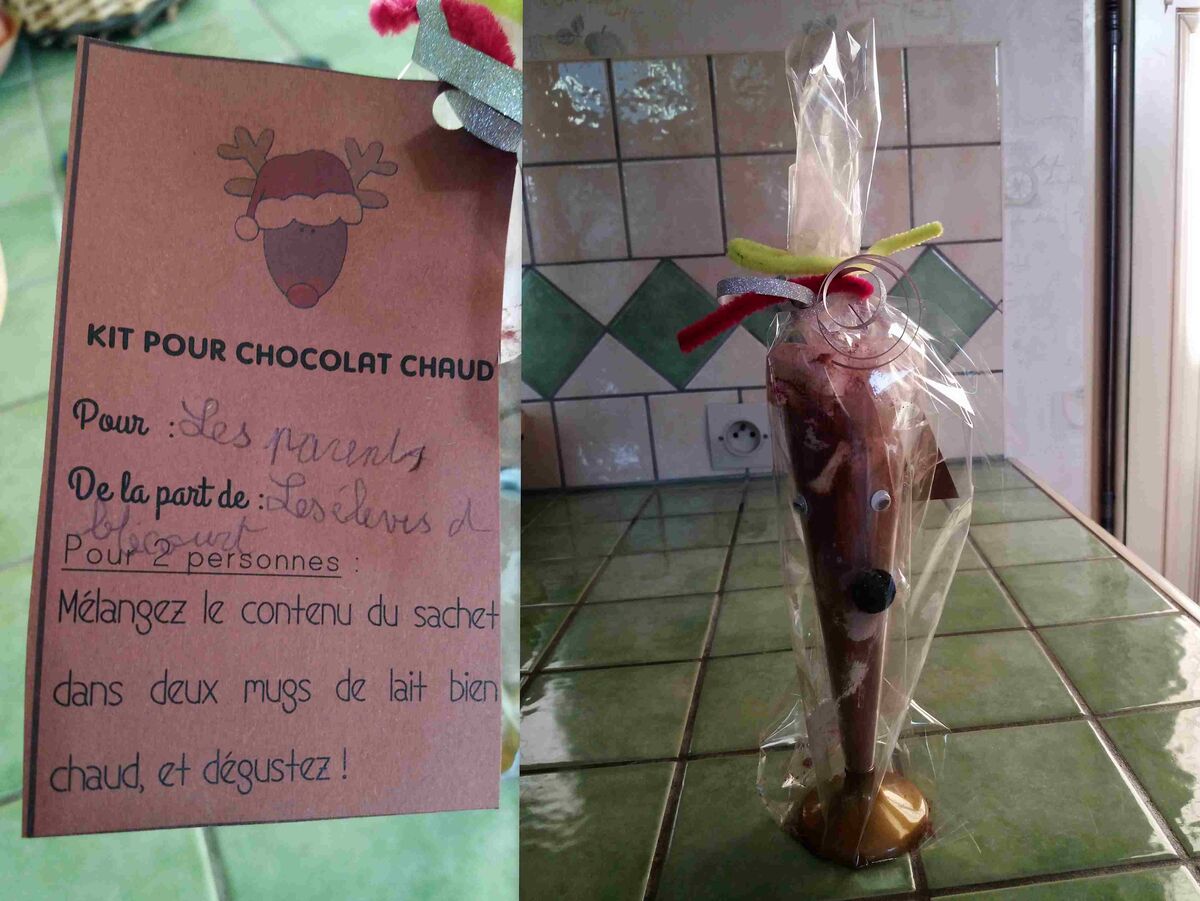 KIT POUR CHOCOLAT CHAUD
Pour : Les parents
De la part de : Les élèves d
blécourt
Pour 2 personnes :
Mélangez le contenu du sachet
dans deux mugs de lait bien
chaud, et dégustez !